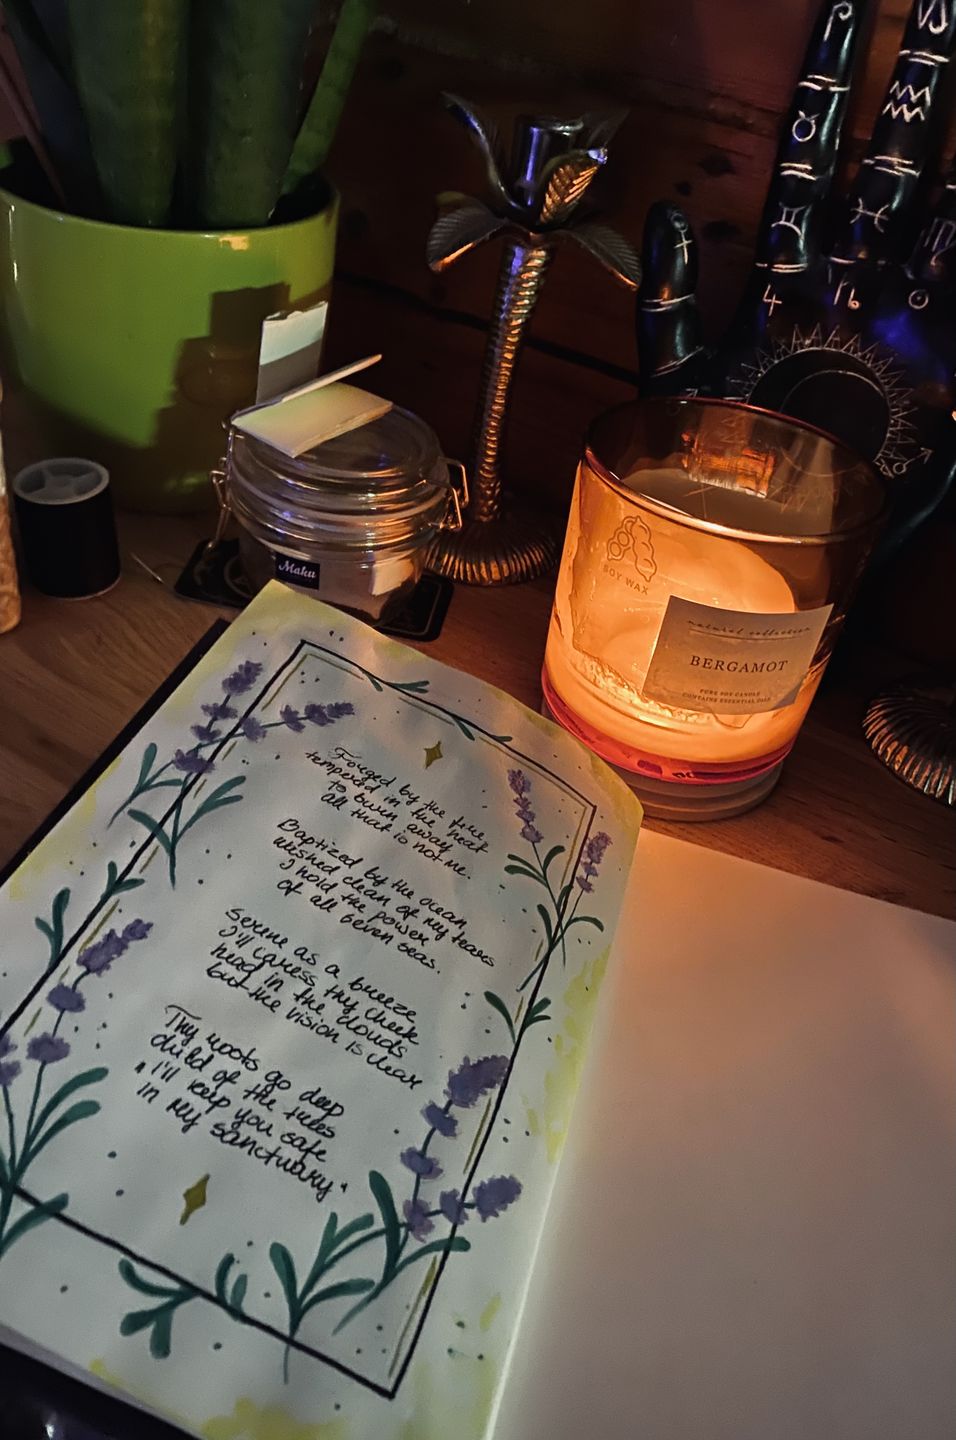 Maku
SOY WAX
natural collection
BERGAMOT
PURE SOY CANDLE
CONTAINS ESSENTIAL OILS
Forged by the fire,
tempered in the heat
to burn away
all that is not me.
Baptized by the ocean,
washed clean of my tears
I hold the power
of all seven seas.
Serene as a breeze
I'll caress thy cheek
head in the clouds
but the vision is clear
Thy roots go deep
child of the trees
I'll keep you safe
in my sanctuary.